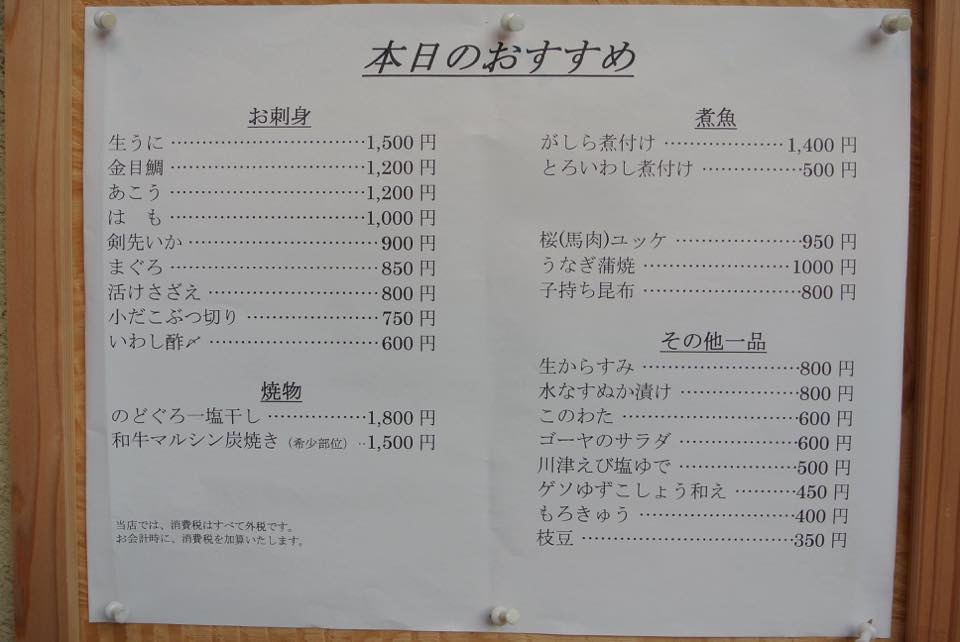 本日のおすすめ
お刺身
生うに ……………………………1,500 円
金目鯛 ……………………………1,200 円
あこう ……………………………1,200 円
は　も ……………………………1,000 円
剣先いか ……………………………900 円
まぐろ ………………………………850 円
活けさざえ …………………………800 円
小だこぶつ切り ……………………750 円
いわし酢〆 …………………………600 円
焼物
のどぐろ一塩干し ………………1,800 円
和牛マルシン炭焼き（希少部位）‥1,500 円
当店では、消費税はすべて外税です。
お会計時に、消費税を加算いたします。
煮魚
がしら煮付け …………………1,400 円
とろいわし煮付け ………………500 円
桜(馬肉)ユッケ …………………950 円
うなぎ蒲焼 ……………………1000 円
子持ち昆布 ………………………800 円
その他一品
生からすみ ………………………800 円
水なすぬか漬け …………………800 円
このわた …………………………600 円
ゴーヤのサラダ …………………600 円
川津えび塩ゆで …………………500 円
ゲソゆずこしょう和え …………450 円
もろきゅう ………………………400 円
枝豆 ………………………………350 円